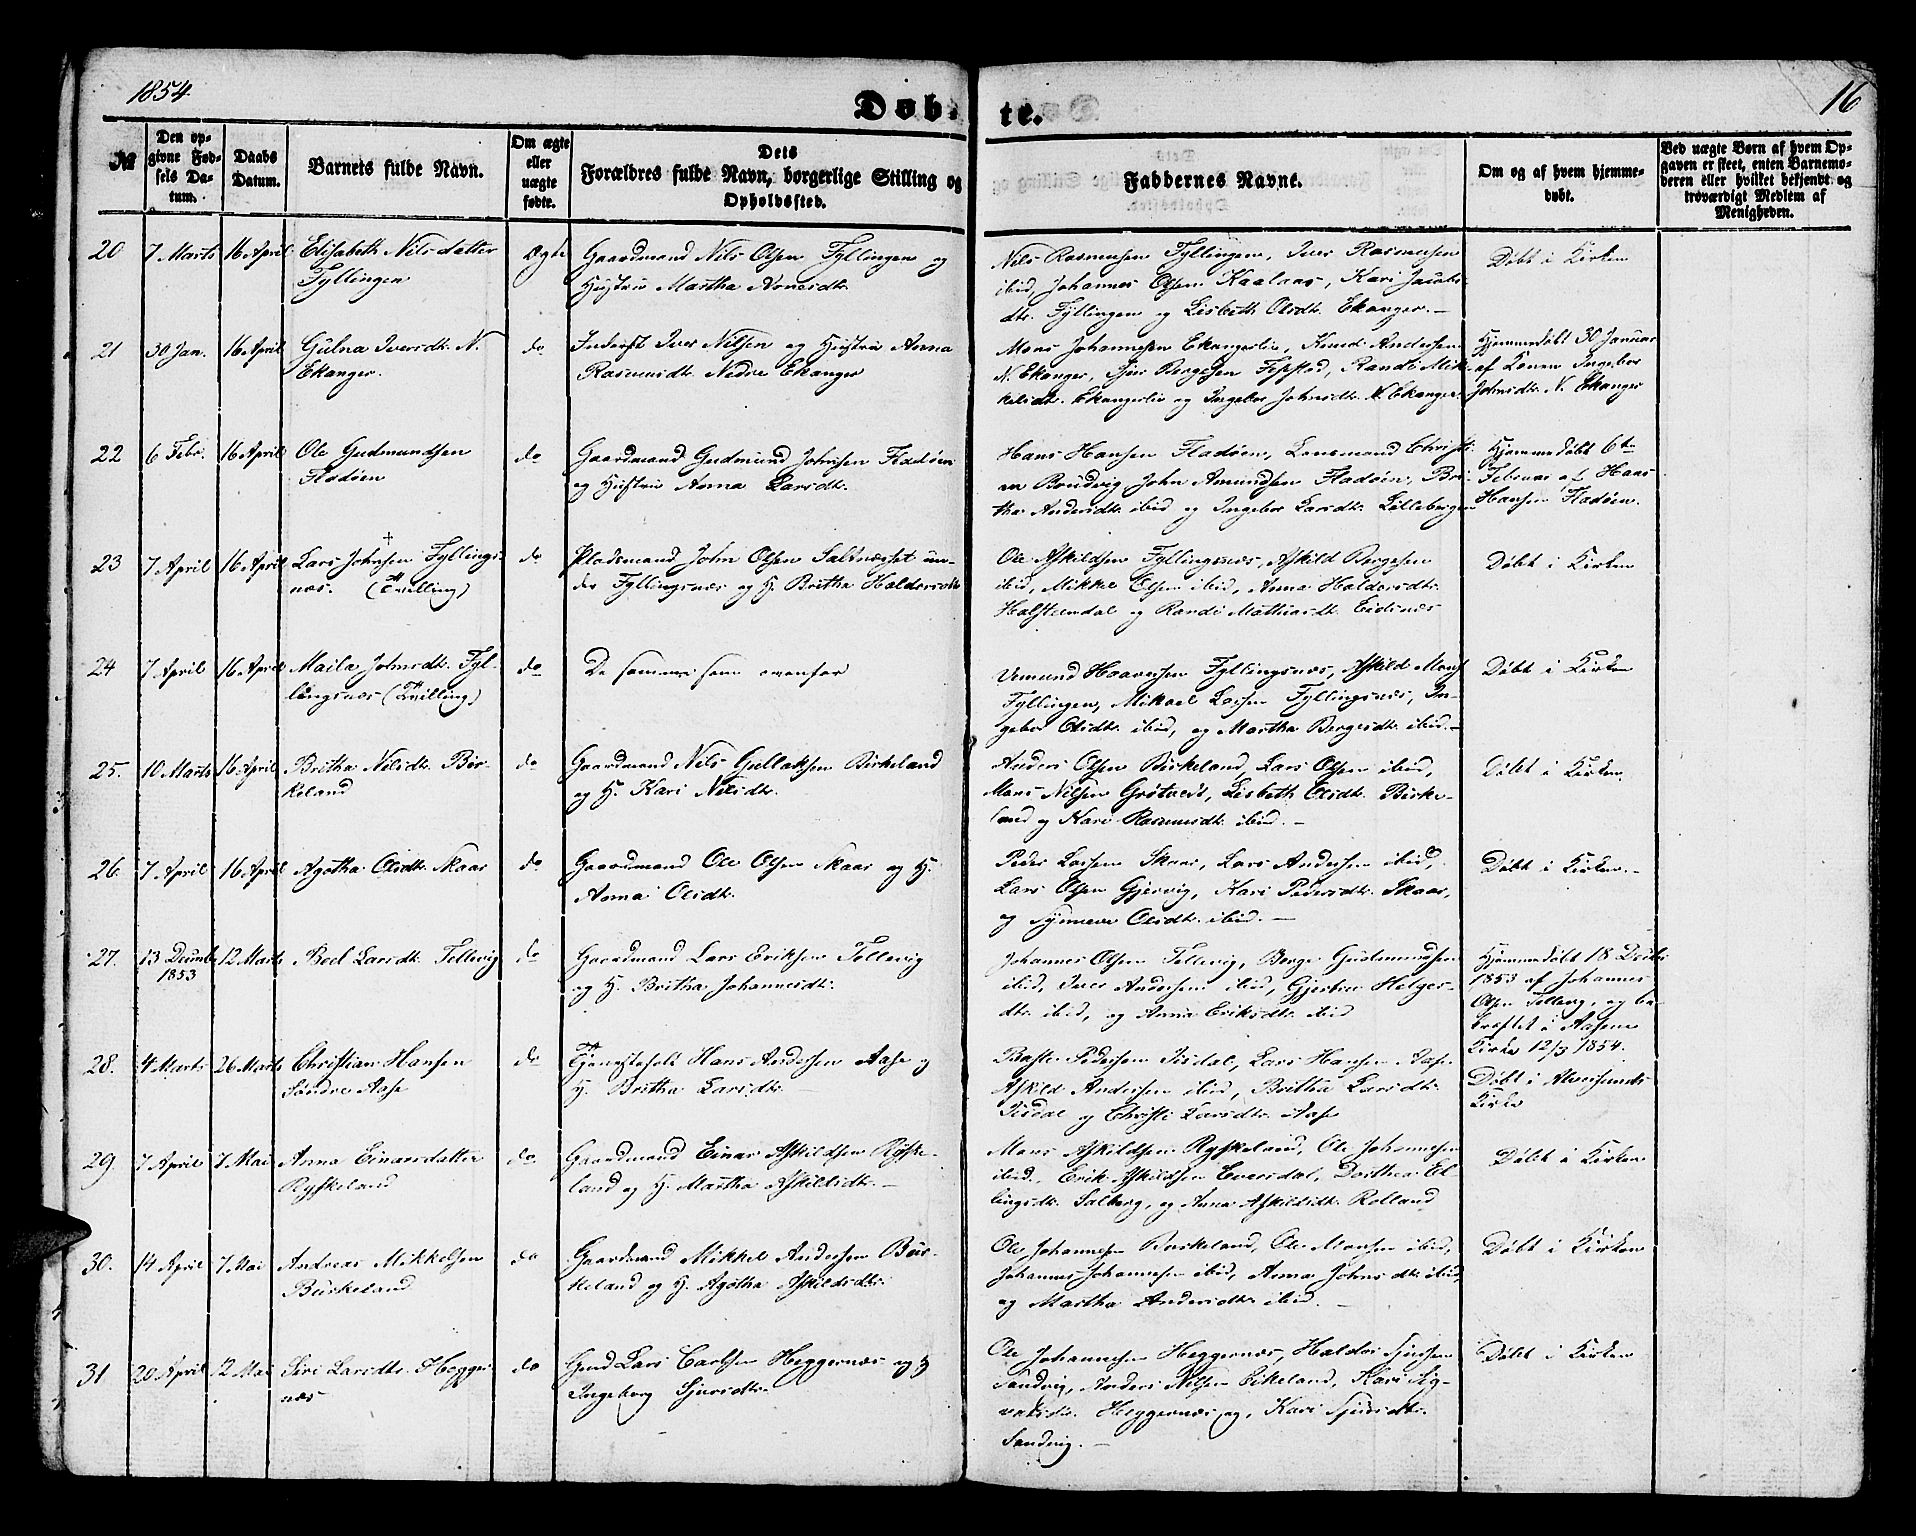 1854
16
Døbte.
№
Den opgivne Fødsels Datum.
Daabs Datum.
Barnets fulde Navn.
Om ægte eller uægte fødte.
Dets Forældres fulde Navn, borgerlige Stilling og Opholdssted.
Faddernes Navne.
Om og af hvem hjemmedøbt.
Ved uægte Børn af hvem Opgaven er skeet, enten Barnemoderen eller hvilket bekjendt og troværdigt Medlem af Menigheden.
20 7 Marts 16 April Elisabeth Nilsdatter Ægte Gaardmand Nils Olsen Fyllingen og
Fyllingen Hustru Martha
Nils Rasmussen Fyllingen, Iver Rasmussen Døbt i Kirken
ibid, Johannes Olsen Kaalaas, Kari Jacobs-
dtr. Fyllingen og Lisbeth Olsdtr. Ekanger.–
21 30 Jan. 16 April Gulna Iversdtr. N. do Inderst Iver Nilsen og Hustru Anna
Ekanger. Rasmusdtr. Nedre Ekanger
Mons Johannesen Ekangerlie, Knud Andersen Hjemmedøbt 30 Januar
N. Ekanger, Sjur Børgesen Fepstad, Randi Mik- af Konen Ingebor
kelsdtr. Ekangerlie og Ingebor Johnsdtr. N. Ekanger. Johnsdtr. N. Ekanger
22 6 Febr. 16 April Ole Gudmundsen do Gaardmand Gudmund Johnsen Fladøen
Fladøen og Hustru Anna Larsdtr.
Hans Hansen Fladøen, Lensmand Christi- Hjemmedøbt 6te
an Bendvig John Amundsen Fladøen, Bri- Februar af Hans
tha Andersdtr. ibid og Ingebor Larsdtr. Lillebergen Hansen Fladøen.
23 7 April 16 April Lars Johnsen † Fyllings- do Pladsmand John Olsen Saltnæset un-
næs. (Tvilling) der Fyllingsnæs og H. Britha Haldorsdtr
Ole Askildsen Fyllingsnæs, Askild Børgesen Døbt i Kirken
ibid, Mikkel Olsen ibid, Anna Haldorsdtr.
Halsteendal og Randi Mathiasdtr. Eidsnæs
24 7 April 16 April Maila Johnsdtr. Fyl- do De samme som ovenfor
lingsnæs (Tvilling)
Vemund Haaversen Fyllingsnæs, Askild Mons Døbt i Kirken
Fyllingen, Mikael Larsen Fyllingsnæs, In-
gebor Olsdtr. ibid, og Martha Børgesdtr. ibid.–
25. 10 Marts 16 April Britha Nilsdtr. Bir- do Gaardmand Nils Gullaksen Birkeland
keland og H. Kari Nilsdtr.
Anders Olsen Birkeland, Lars Olsen ibid, Døbt i Kirken
Mons Nilsen Grøtvedt, Lisbeth Olsdtr. Birke-
land og Kari Rasmusdtr. ibid.–
26. 7 April 16 April Agotha Olsdtr. Skaar do Gaardmand Ole Olsen Skaar og H.
Anna Olsdtr.
Peder Larsen Skaar, Lars Andersen ibid, Døbt i Kirken.–
Lars Olsen Gjervig, Kari Pedersdtr. Skaar,
og Synneve Olsdtr. ibid.–
27. 13 Decembr 12 Marts Boel Larsdt. Tellevig do Gaardmand Lars Eriksen Tellevig
1853 og H. Britha Johannesdtr.
Johannes Olsen Tellevig, Børge Gudmundsen Hjemmedøbt 18 Decbr
ibid, Iver Andersen ibid, Gjertru Helges- 1853 af Johannes
dtr. ibid, og Anna Eriksdtr. ibid Olsen Tellevig, og be-
kræftet i Aasene
Kirke 12/3 1854.
28. 4 Marts 26 Marts Christian Hansen do Tjenestekarl Hans Andersen Aase og
Søndre Aase H. Britha Larsdtr.
Pedersen Isdal, Lars Hansen Aase Døbt i Alversunds
Askild Andersen ibid, Britha Larsdtr. Kirke
Isdal og Christi Larsdtr. Aase
29. 7 April 7 Mai Anna Einarsdatter do Gaardmand Einar Askildsen Ryske-
Ryskeland land og H. Martha Askildsdtr.–
Mons Askildsen Ryskeland, Ole Johannesen Døbt i Kirken
ibid, Erik Askildsen Eversdal, Dorthea El-
lingsdtr. Salberg, og Anna Askildsdtr. Rolland
30. 14 April 7 Mai Andreas Mikkelsen do Gaardmand Mikkel Andersen Bir-
Birkeland keland og H. Agotha Askildsdtr.
Ole Johannesen Birkeland, Ole Monsen ibid, Døbt i Kirken
Johannes Johannesen ibid, Anna Johnsdtr. ibid,
og Martha Andersdtr. ibid.–
31 20 April 12 Mai Siri Larsdtr. Hegger- do Gmd Lars Carlsen Heggernæs og H
næs Ingeborg Sjursdtr.
Ole Johannesen Heggernæs, Haldor Sjursen Døbt i Kirken
Sandvig, Anders Nilsen Eikeland, Kari Sig-
vatsdtr. Heggernæs og, Kari Sjursdtr.
Sandvig.–